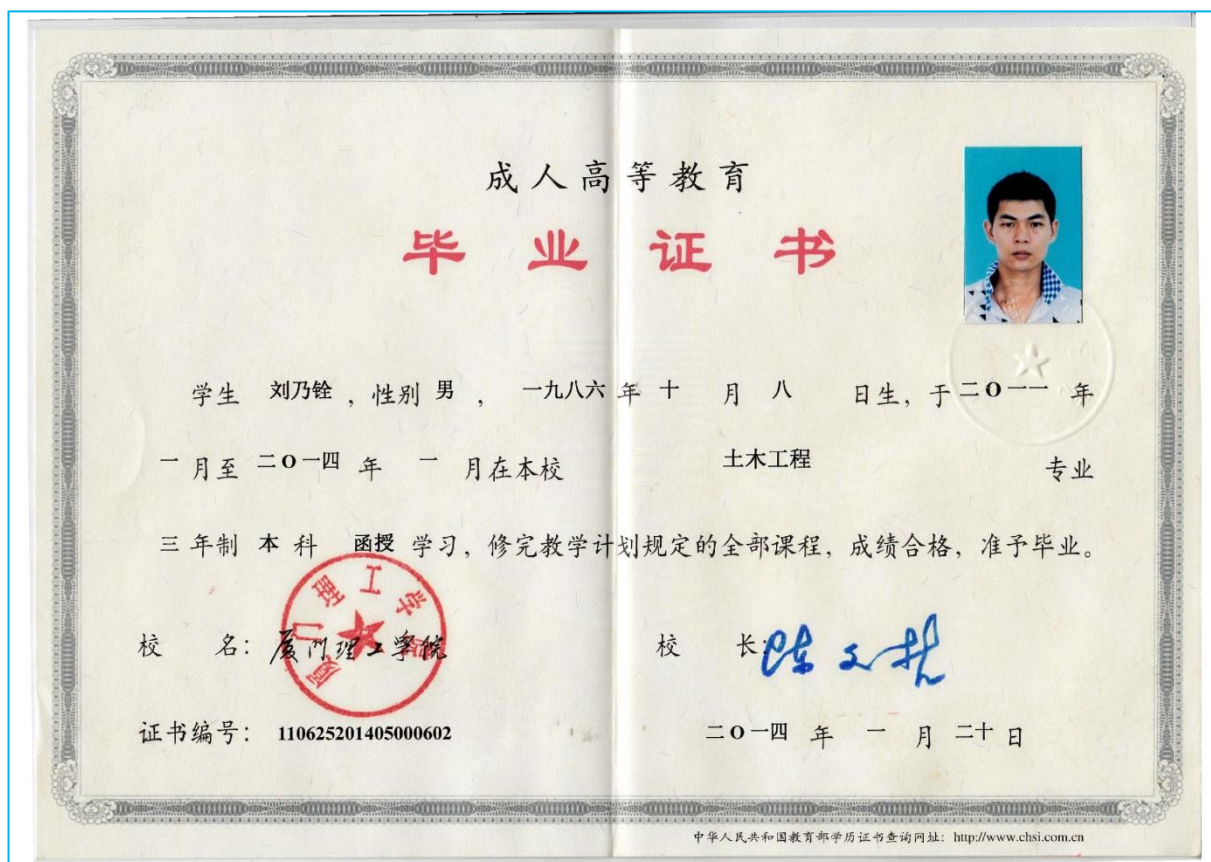 成人高等教育
毕业证书
学生 刘乃铨 ，性别 男 ， 一九八六 年 十 月 八 日生，于 二O一一 年
一 月至 二O一四 年 一 月在本校 土木工程 专业
三 年制 本 科 函授 学习，修完教学计划规定的全部课程，成绩合格，准予毕业。
厦门理工学院
校 名：厦门理工学院 校 长：
证书编号： 110625201405000602 二O一四 年 一 月 二十 日
中华人民共和国教育部学历证书查询网址：http://www.chsi.com.cn